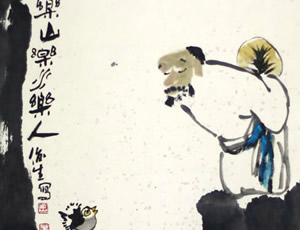 樂山樂水樂人 生寫